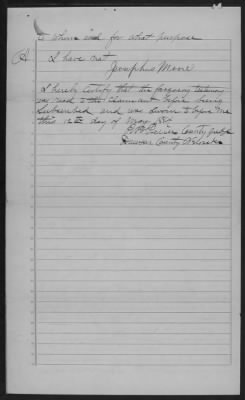 to whom and for what purpose
A I have not
Josephus Moore
I hereby certify that the foregoing testimony
was read to the claimant before being
subscribed and was sworn to before me
this 12th day of May
County Judge
County